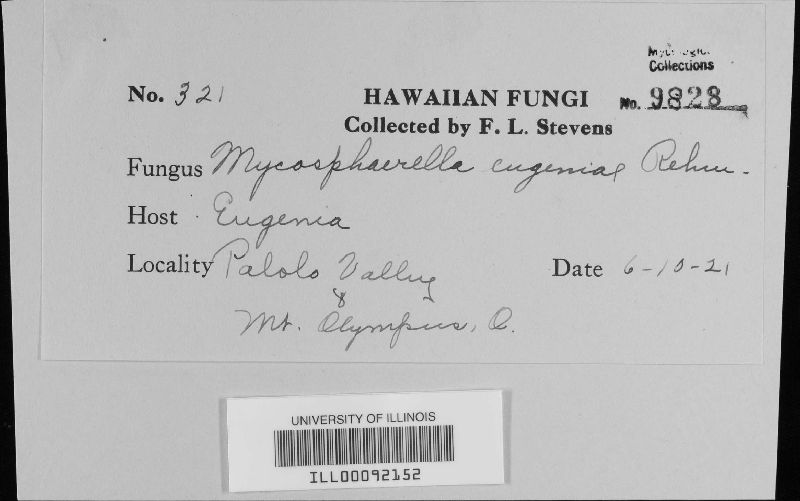 Mycological
Collections
No. 321
HAWAIIAN FUNGI
No. 9828
Collected by F. L. Stevens
Fungus Mycosphaerella eugeniae Rehm.
Host Eugenia
Locality Palolo Valley
Date 6-10-21
&
Mt. Olympus, O.
UNIVERSITY OF ILLINOIS
ILL00092152